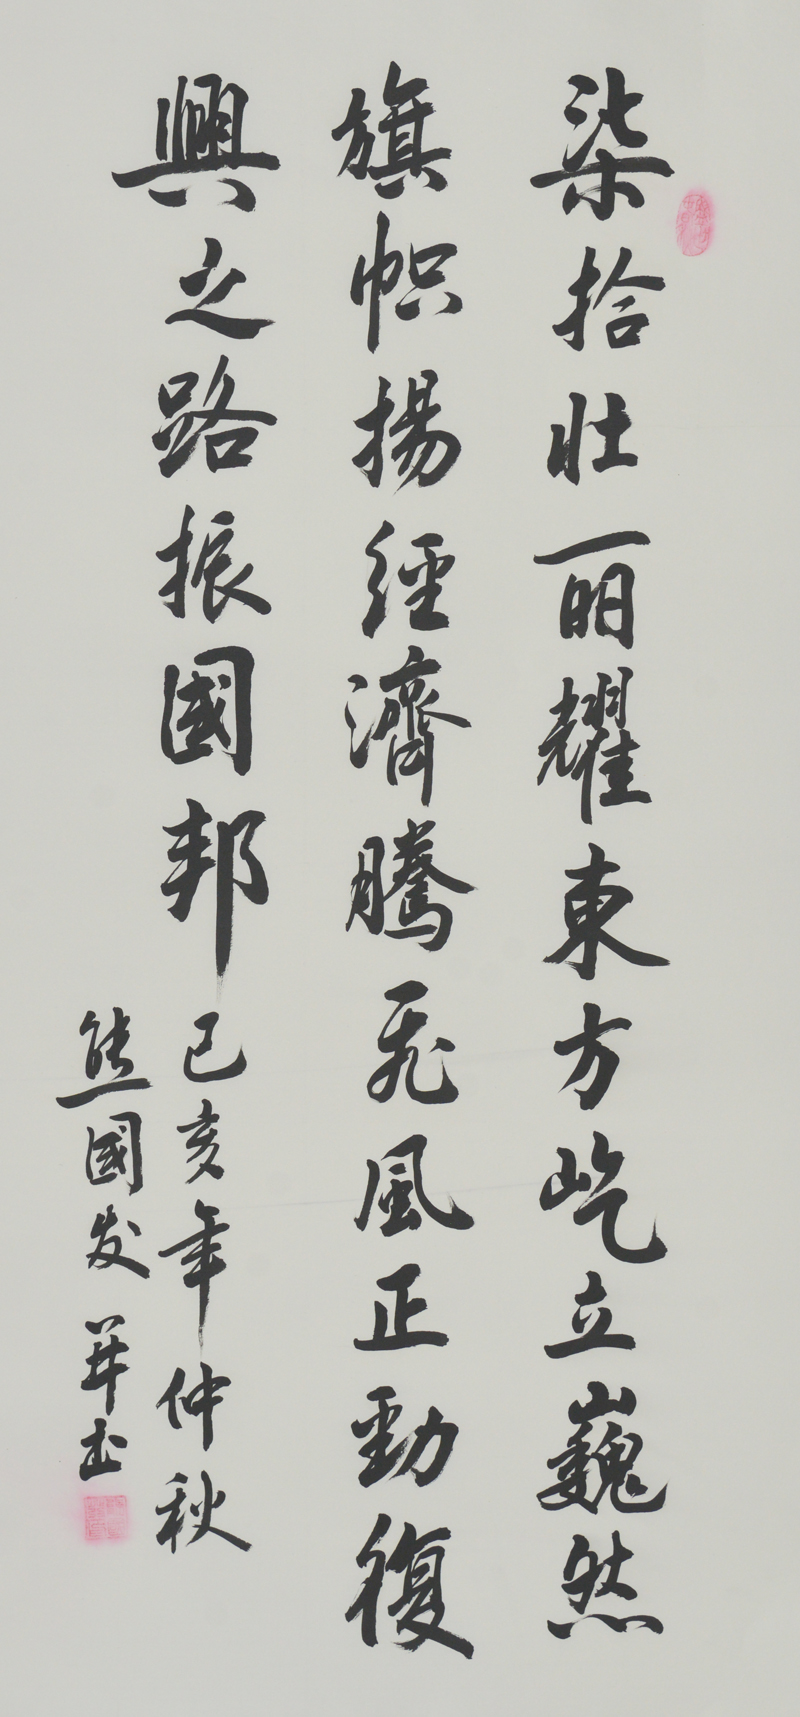 柒拾壮丽耀東方屹立巍然
旗帜揚經濟騰飛風正勁復
興之路振國邦
己亥年仲秋
熊國发并书